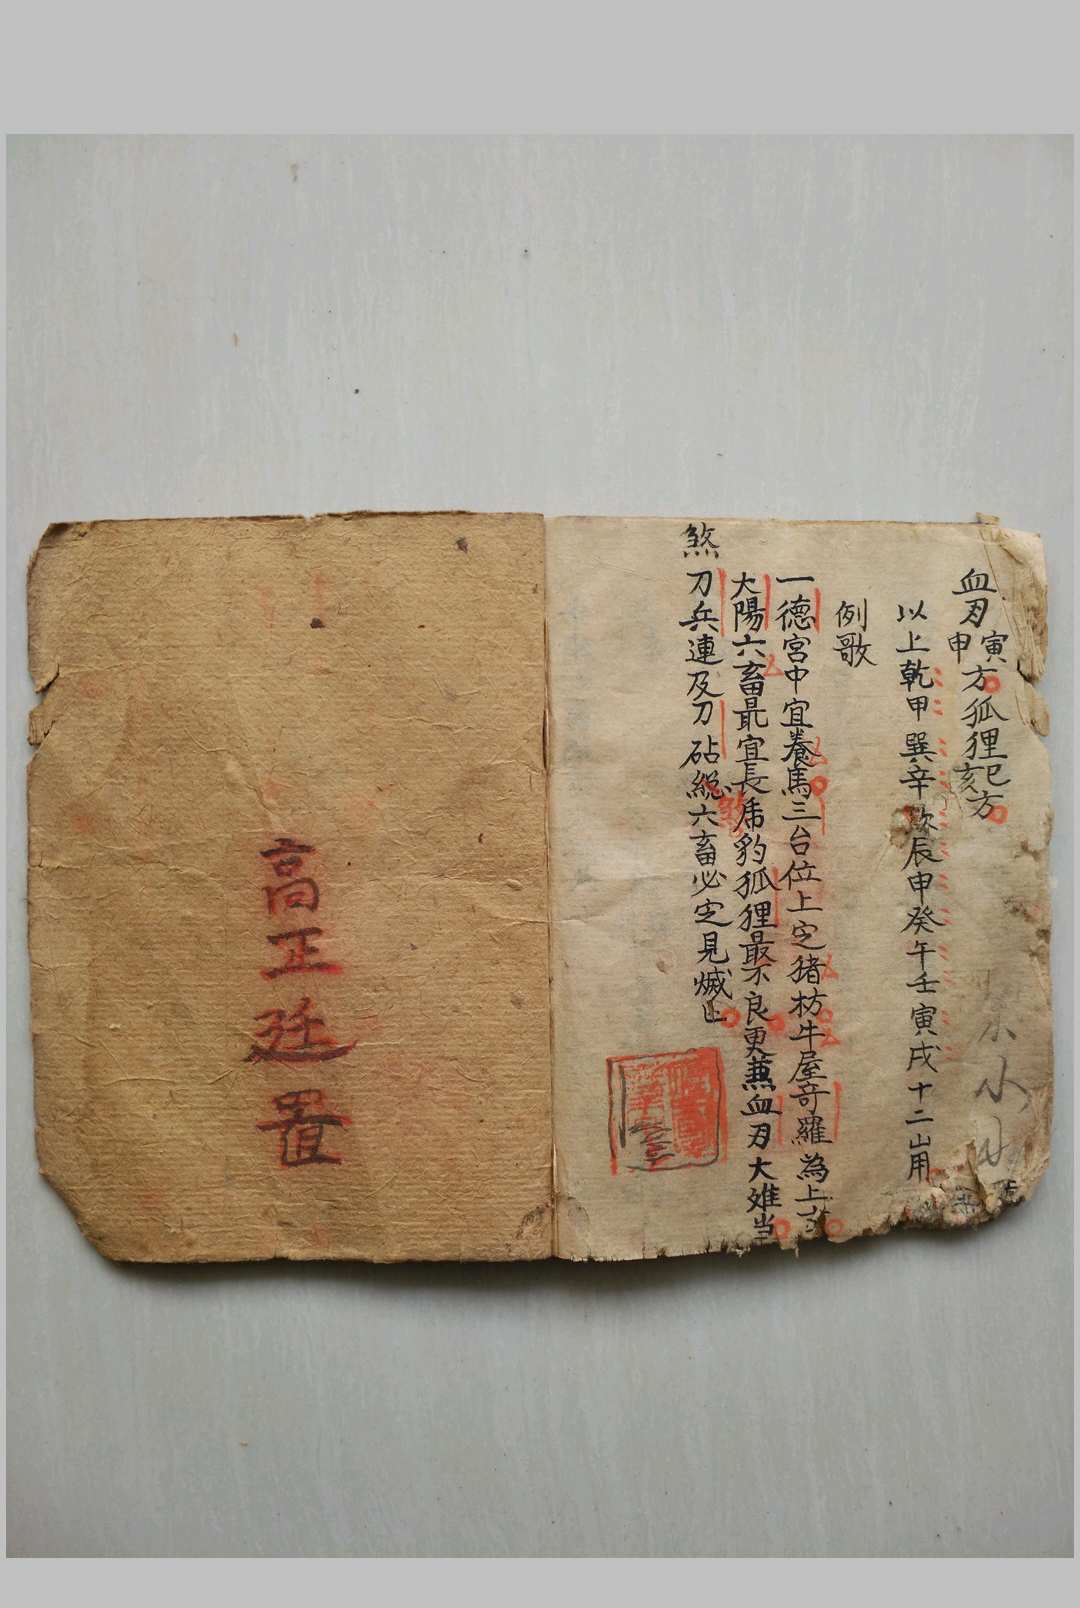 血刃寅申方狐狸巳亥方
以上乾甲巽辛 辰申癸午壬寅戌十二山用
例歌
一德宮中宜養馬三台位上定猪枋牛屋奇羅為上吉
太陽六畜最宜長虎豹狐狸最不良更兼血刃大难当
煞
刀兵連及刀砧縂煞六畜必定見㓕亡
高正廷置